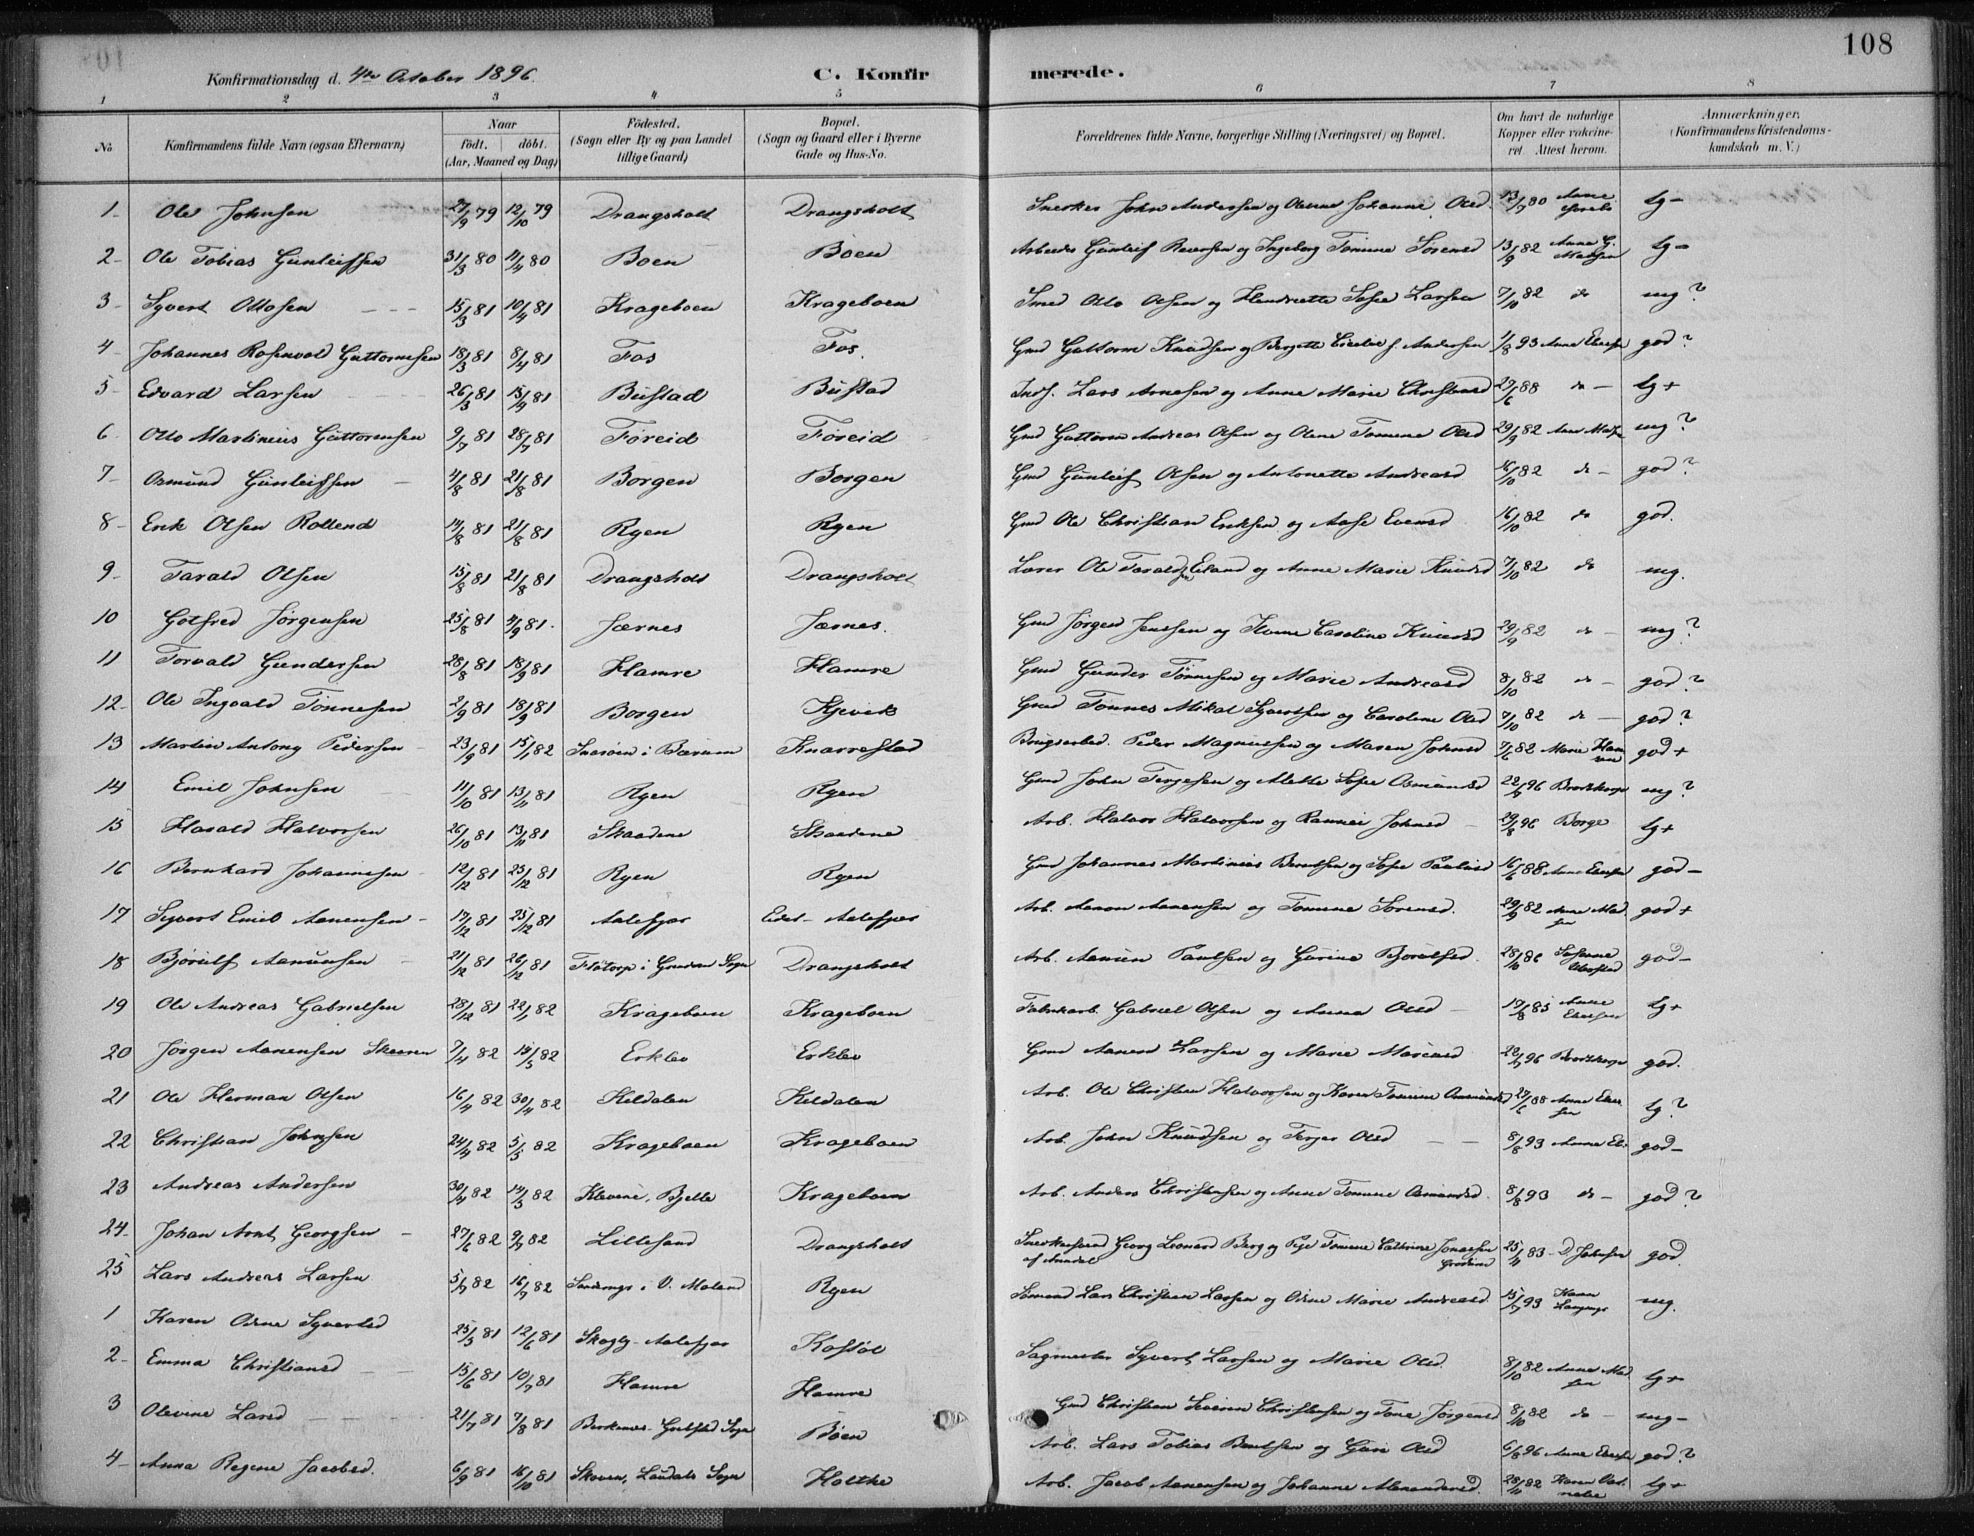 108
Konfirmationsdag d. 4de October 1896.
C. Konfirmerede.
1 2 3 4 5 6 7 8
No Konfirmandens fulde Navn (ogsaa Efternavn) Naar födt. döbt. (Aar, Maaned og Dag) Födested. (Sogn eller By og paa Landet tillige Gaard) Bopæl. (Sogn og Gaard eller i Byerne Gade og Hus-No. Forældrenes fulde Navne, borgerlige Stilling (Næringsvei) og Bopæl. Om havt de naturlige Kopper eller vakcineret. Attest herom. Anmærkninger. (Konfirmandens Kristendomskundskab m. V.)
1 Ole Johnsen 27/9 79 12/10 79 Drangsholt Drangsholt Snerker John Andersen og Olenne Johanne Olsd. 13/7 80 Anne tg -
2 Ole Tobias Gunleifsen 31/3 80 11/4 80 Boen Boen Arbeider Gunleif Reiersen og Ingeborg Tomine Sörensd 13/9 82 Anne G. Madsen tg -
3 Syvert Ottosen 15/3 81 10/4 81 Krageboen Krageboen Smed Otto Olsen og Hendriette Sofie Larsen 7/10 82 do mg ?
4 Johannes Rosenvold Guttormsen 18/3 81 8/4 81 Fos Fos. Gmd Guttorm Knudsen og Bergette Andersen 1/8 93 Anne god ?
5 Edvard Larsen 26/3 81 15/4 81 Bustad Bustad Inds. Lars Arnesen og Anne Marie Christensd 27/6 88 do - tg +
6 Otto Martinius Guttormsen 9/7 81 28/7 81 Föreid Föreid Gmd Guttorm Andreas Olsen og Olene Tomine Olsd 29/9 82 Anne mg ?
7 Osmund Gunleifsen 4/8 81 21/8 81 Borgen Borgen Gmd Gunleif Olsen og Antonette Andreasd 16/10 82 do - god ?
8 Erik Olsen Rollend 14/8 81 21/8 81 Ryen Ryen Gmd Ole Christian Eriksen og Aase Evensd 16/10 82 do god.
9 Tarald Olsen 15/8 81 21/8 81 Drangsholt Drangsholt Lærer Ole Taraldsen Eiland og Anne Marie Knudsd 7/10 82 do mg.
10 Gotfred Jörgensen 25/8 81 4/9 81. Jærnes Jærnes. Gmd Jörgen Jensen og Caroline Knudsd 29/9 82 do - mg ?
11 Torvald Gundersen 28/8 81 18/9 81 Hamre Hamre Gmd Gunder Tönnesen og Marie Andreasd 8/10 82 do - god ?
12 Ole Ingvald Tönnesen 2/9 81 18/9 81 Borgen Kjevik Gmd Tönnes Mikal Syvertsen og Caroline Olsd 7/10 82 do - god ?
13 Martin Antony Pedersen 23/9 81 15/1 82 Snaröen i Bærum Knarrestad Brugsarbed. Peder Magnussen og Maren Johnsd 7/6 82 Marie god +
14 Emil Johnsen 11/10 81 13/11 81 Ryen Ryen Gmd John Tergesen og Alette Sofie Osmundsd 22/9 96 Brodtkorp mg ?
15 Harald Halvorsen 26/10 81 13/11 81 Skaadene Skaadene Arb. Halvor Halvorsen og Rannei Johnsd 29/8 96 Borge tg +
16 Bernhard Johannesen 12/12 81 25/12 81 Ryen Ryen Gmd Johannes Martinius Berntsen og Sofie Paulsd 16/6 88 Anne god -
17 Syvert Emil Aanensen 17/12 81 25/12 81 Aalefjær Eidet - Aalefjær Arb. Aanon Aanensen og Tomine Sörensd. 29/9 82 Anne Madsen god +
18 Björulf Aanunsen 21/12 81 26/12 81 Sogn Drangsholt Arb. Aanun Paulsen og Gurine Björulfsd. 28/10 86 god -
19 Ole Andreas Gabrielsen 28/12 81 22/1 82 Krageboen Krageboen Fabrikarb. Gabriel Olsen og Anna Olsd 17/8 85 Anne tg +
20 Jörgen Aanensen 7/4 82 82 Erklev Erklev Gmd Aanen Larsen og Marie 96 Brodtkorp god.
21 Ole Herman Olsen 16/4 82 30/4 82 Keldalen Keldalen Arb. Ole Christian Halvorsen og Karen Tomine Osmundsd 27/6 88 Anne tg ?
22 Christian Johnsen 24/4 82 5/5 82 Krageboen Krageboen Arb. John Knudsen og Terjer Olsd 8/8 93 Anne god -
23 Andreas Andersen 30/4 82 14/5 82 Klevene, Krageboen Arb. Anders Christensen og Anne Tomine Osmundsd. 8/8 93 do - god ?
24 Johan Arnt Georgsen 27/6 82 9/7 82 Lillesand Drangsholt Snedkersvend Georg Leonard Berg og Pige Tomine Cathrine Jonassen af Arendal 25/11 83 - D. Johnsen god.
25 Lars Andreas Larsen 5/7 82 16/7 82 i V. Moland Ryen Sömand Lars Christian Larsen og Odne Marie Andreasd. 15/7 93 Karen mg.
1 Karen Odine Syvertsd 25/5 81 12/6 81 Skogly - Aalefjær Kostöl Sagmester Syvert Larsen og Marie Olsd. 8/10 82 Anne Madsen tg +
2 Emma Christiansd 15/6 81 10/7 81 Hamre Hamre Gmd Christian Severin Christensen og Tone Jörgensd 8/10 82 do - mg -
3 Olevine Larsd 21/7 81 7/8 81 Birkenes Sogn Böen Arb. Lars Tobias Berntsen og Guri Olsd 6/8 96 Anne god ?
4 Anna Regine Jacobsd. 6/9 81 16/10 81 Skoven, Laudals Sogn Holtke Arb. Jacob Aanensen og Johanne Alexandersd. 28/11 82 Karen tg +